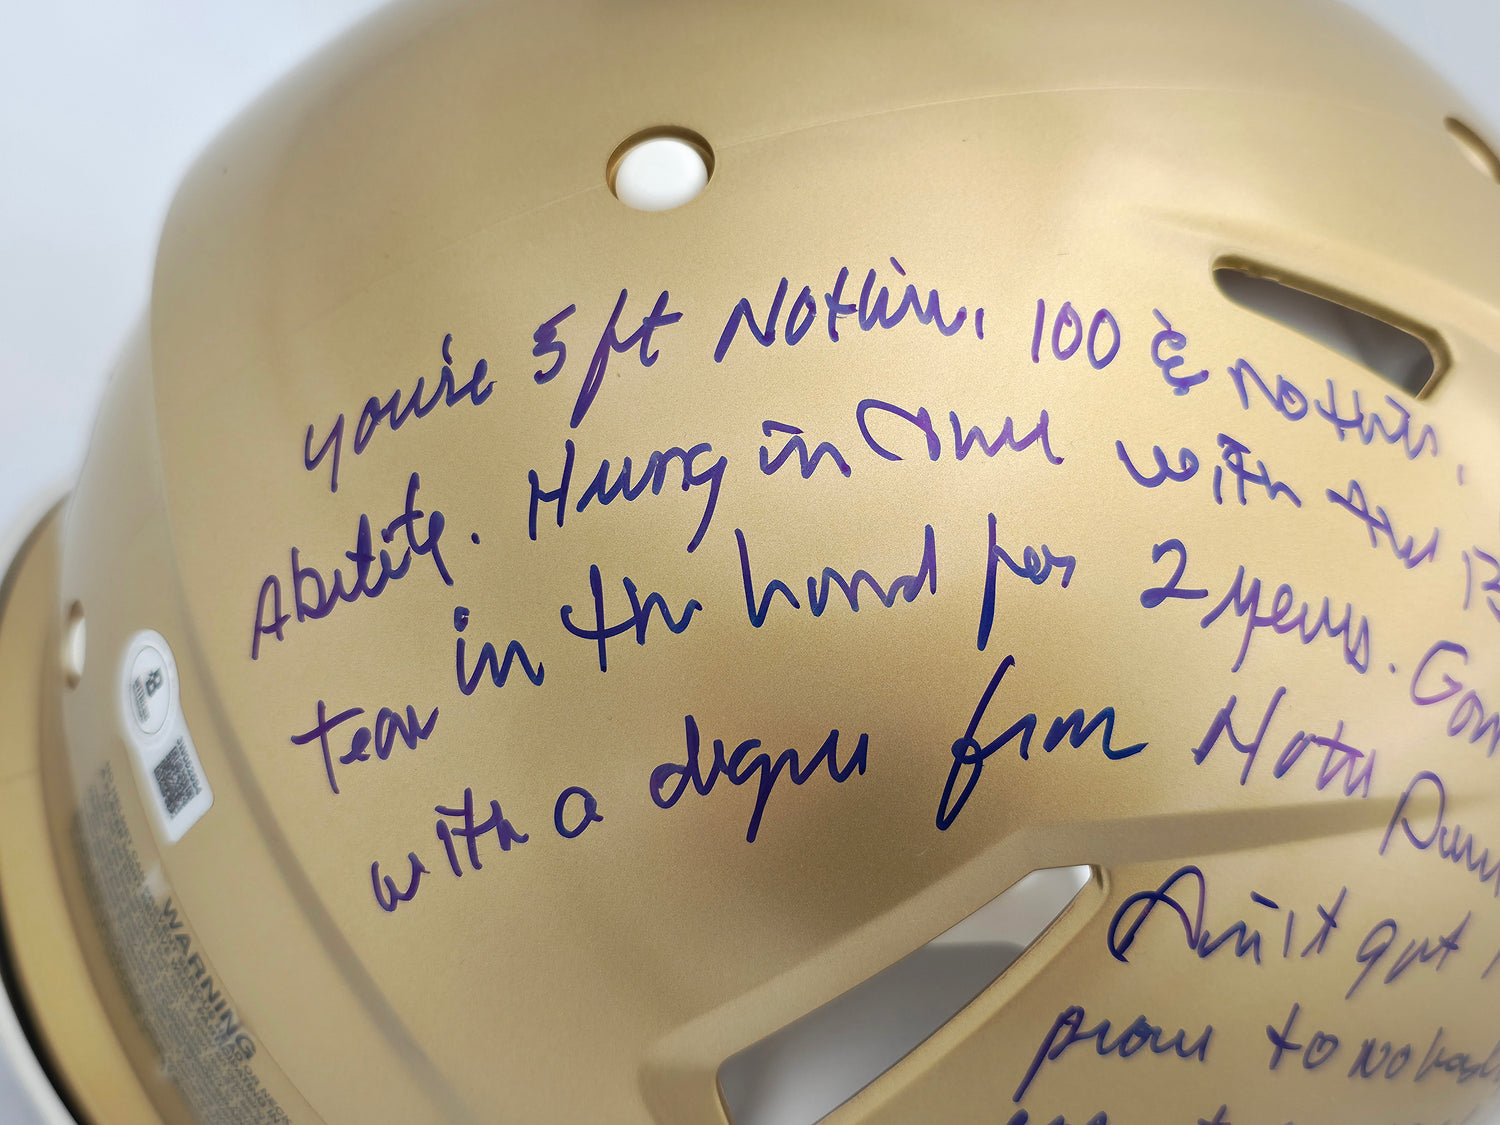 you're 5 ft Nothin, 100 & Nothin.
Ability. Hung in there with the B
team in the land for 2 years. Gon
with a degree from Notre Dam
Ain't got
prove to nobod
WARNING